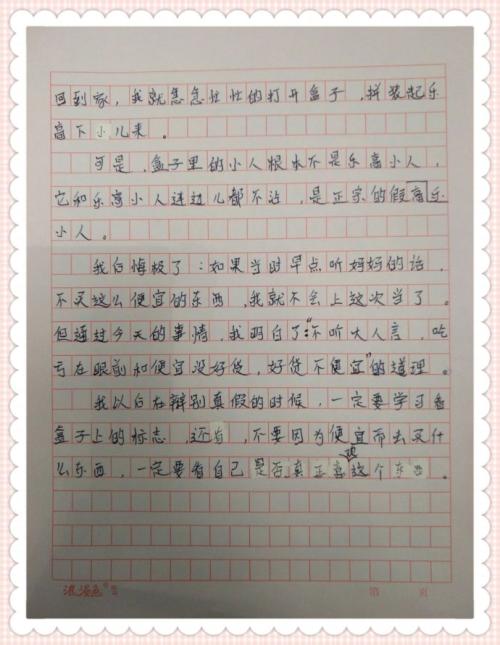 回到家，我就急急忙忙的打开盒子，拼装起乐
高下小儿来。
可是，盒子里的小人根本不是乐高小人，
它和乐高小人连边儿都不沾，是正宗的假高乐
小人。
我后悔极了：如果当时早点听妈妈的话，
不买这么便宜的东西，我就不会上这次当了。
但通过今天的事情，我明白了“不听大人言，吃
亏在眼前和便宜没好货，好货不便宜”的道理。
我以后在辩别真假的时候，一定要学习看
盒子上的标志，还有，不要因为便宜而去买什
么东西，一定要看自己是否真正喜欢这个东西。
浪漫色
第 页